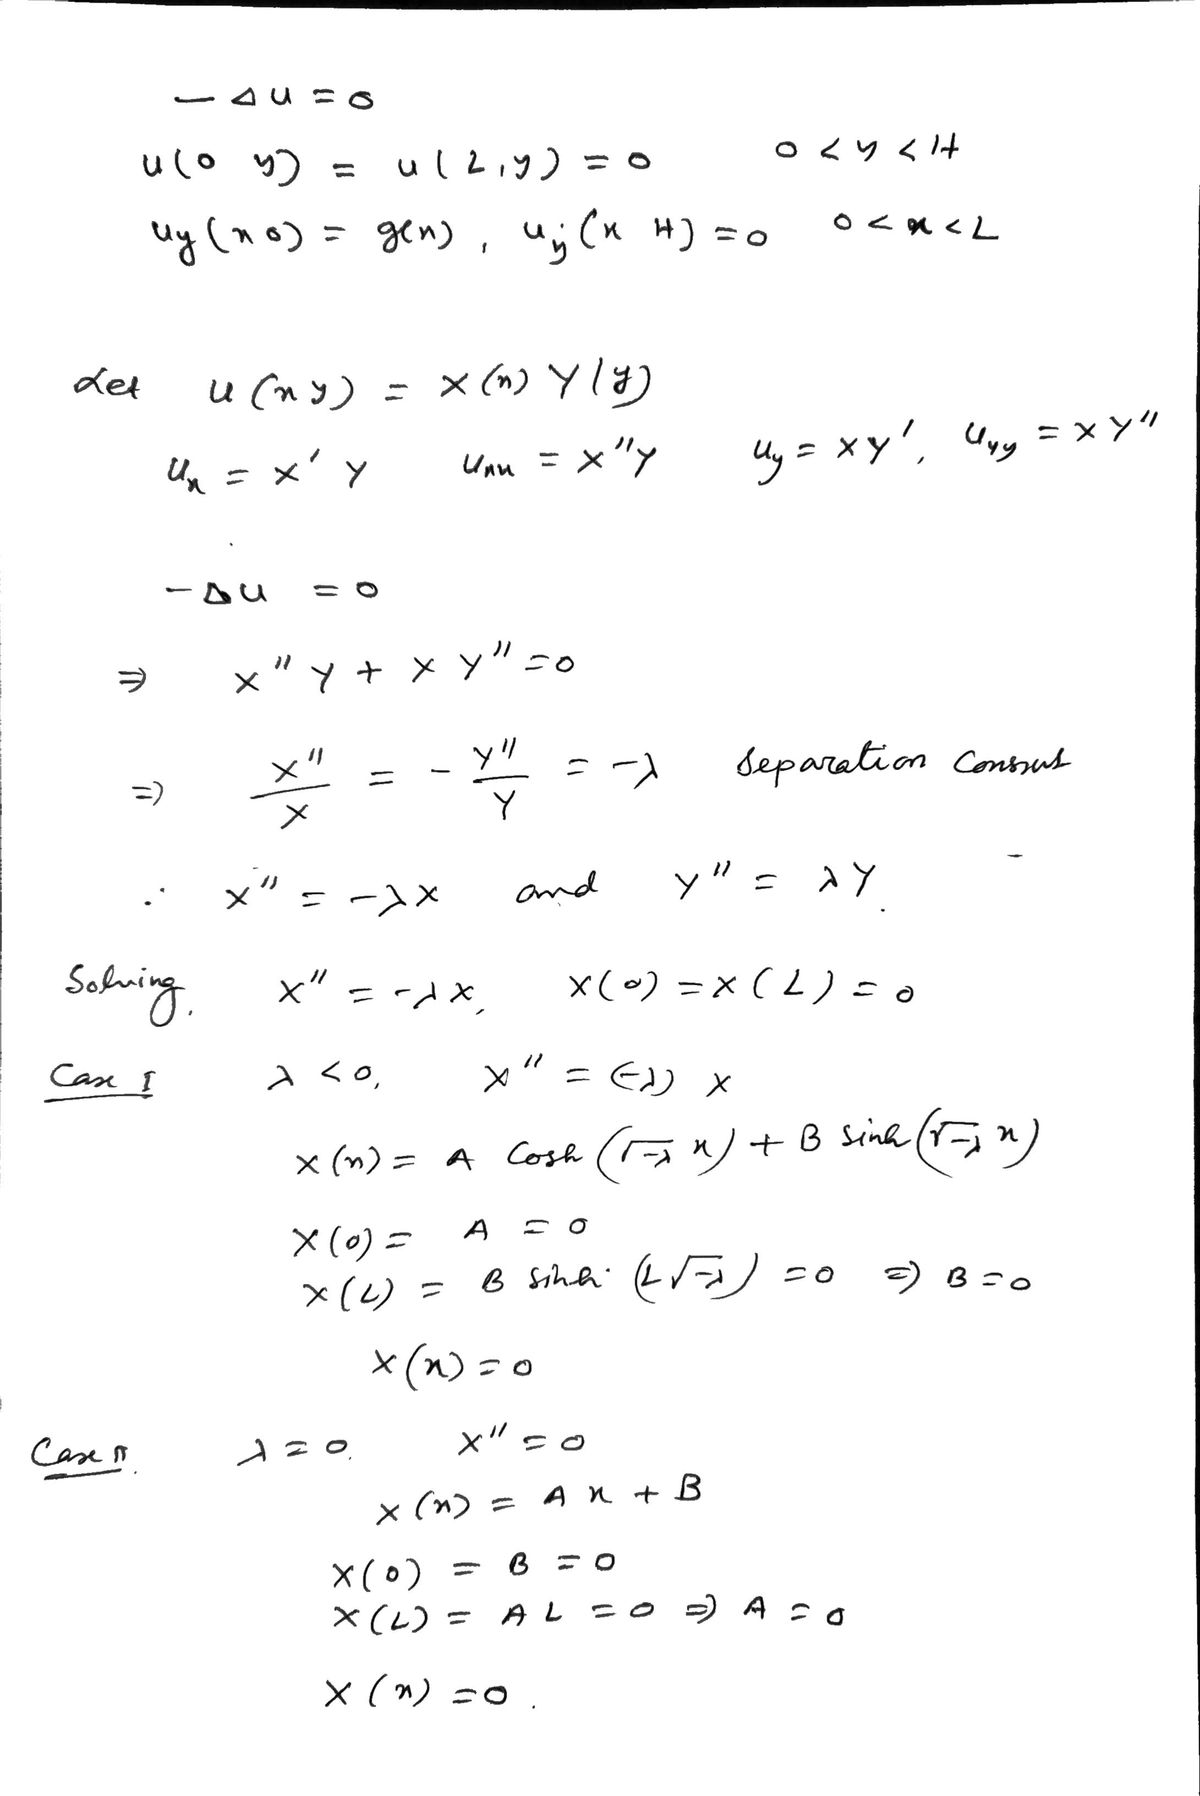 - Δu = 0
u(0 y) = u(L,y) = 0 0 < y < H
uy(x 0) = g(x), uy(x H) = 0 0 < x < L
Let u(x y) = X(x) Y(y)
ux = X' Y uxx = X''Y uy = XY', uyy = XY''
- Δu = 0
⇒ X'' Y + X Y'' = 0
⇒ X''/X = - Y''/Y = -λ Separation
∴ X'' = -λX and Y'' = λY.
Solving, X'' = -λX, X(0) = X(L) = 0
Case I λ < 0, X'' = (-λ) X
X(x) = A Cosh (√-λ x) + B Sinh (√-λ x)
X(0) = A = 0
X(L) = B Sinh (L√-λ) = 0 ⇒ B = 0
X(x) = 0
Case II. λ = 0. X'' = 0
X(x) = A x + B
X(0) = B = 0
X(L) = A L = 0 ⇒ A = 0
X(x) = 0.